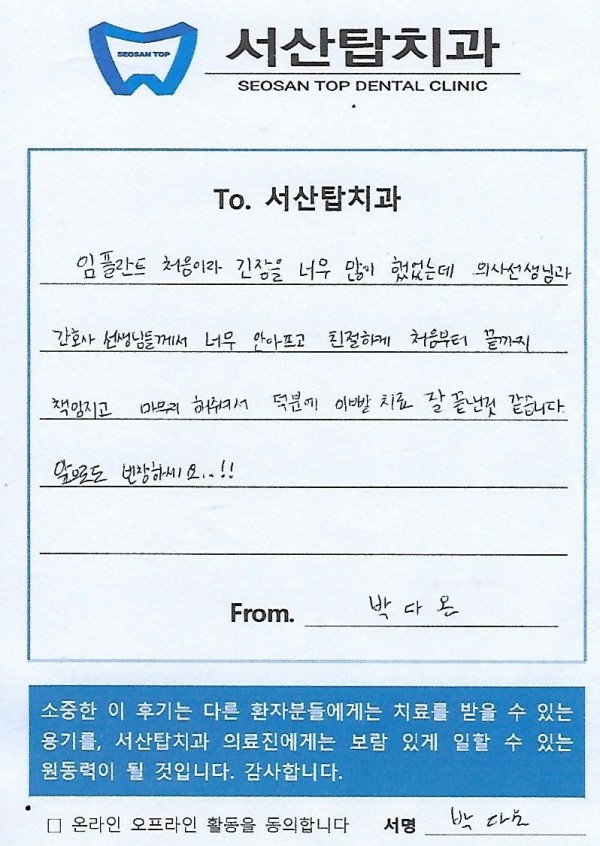 SEOSAN TOP
서산탑치과
SEOSAN TOP DENTAL CLINIC
To. 서산탑치과
임플란트 처음이라 긴장을 너무 많이 했었는데 의사선생님과
간호사 선생님들께서 너무 안아프고 친절하게 처음부터 끝까지
책임지고 마무리 해주셔서 덕분에 이빨 치료 잘 끝낸것 같습니다.
앞으로도 번창하세요..!!
From. 박다온
소중한 이 후기는 다른 환자분들에게는 치료를 받을 수 있는
용기를, 서산탑치과 의료진에게는 보람 있게 일할 수 있는
원동력이 될 것입니다. 감사합니다.
□ 온라인 오프라인 활동을 동의합니다 서명 박다온